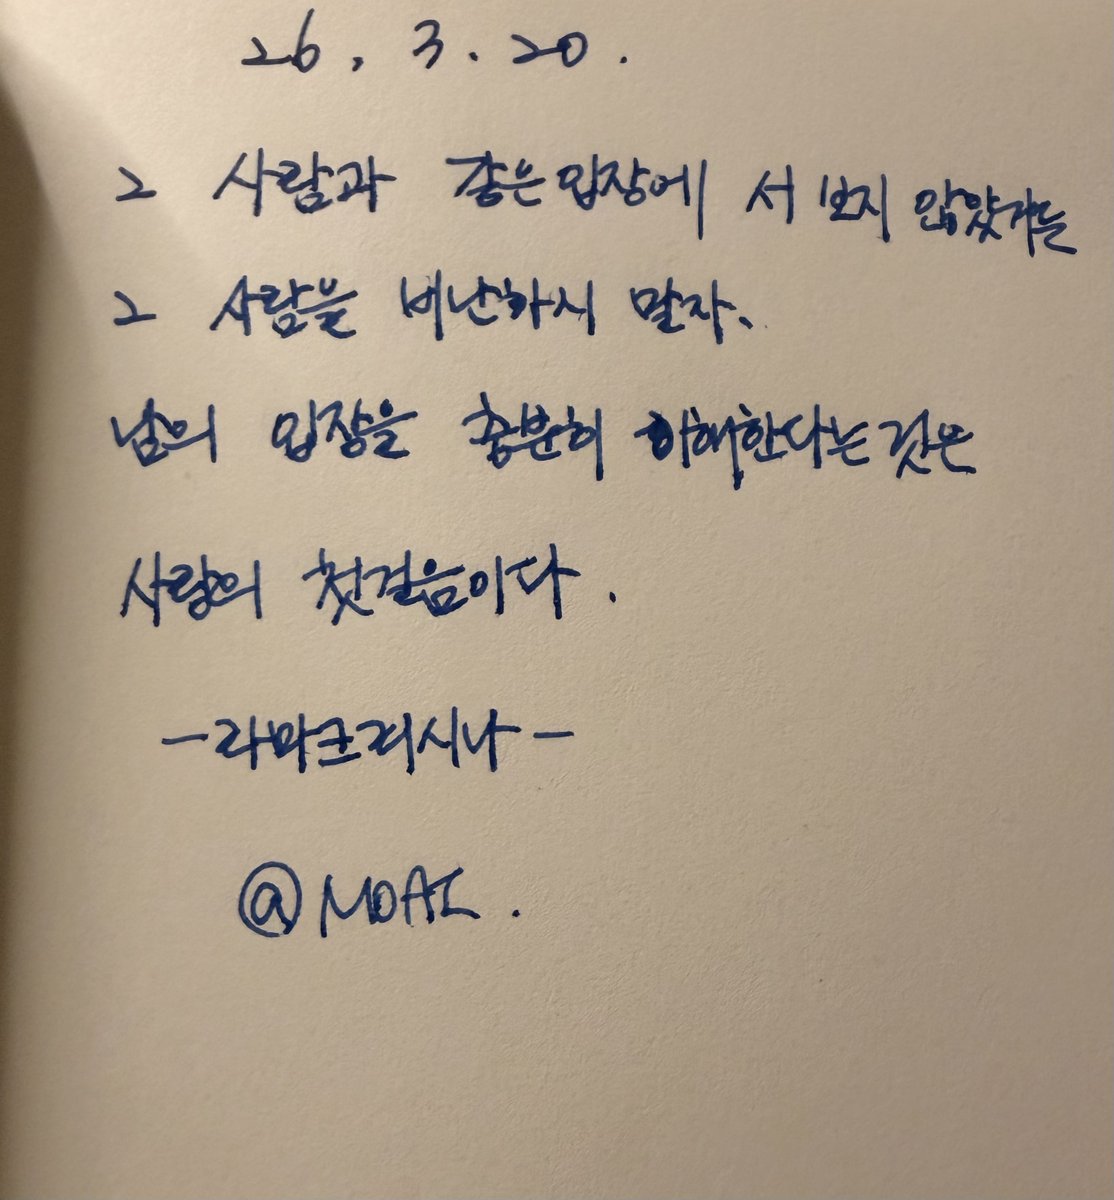 26. 3. 20.
그 사람과 같은 입장에 서 보지 않았거든
그 사람을 비난하지 말자.
남의 입장을 충분히 이해한다는 것은
사랑의 첫걸음이다.
-라마크리시나-
@MOAI.